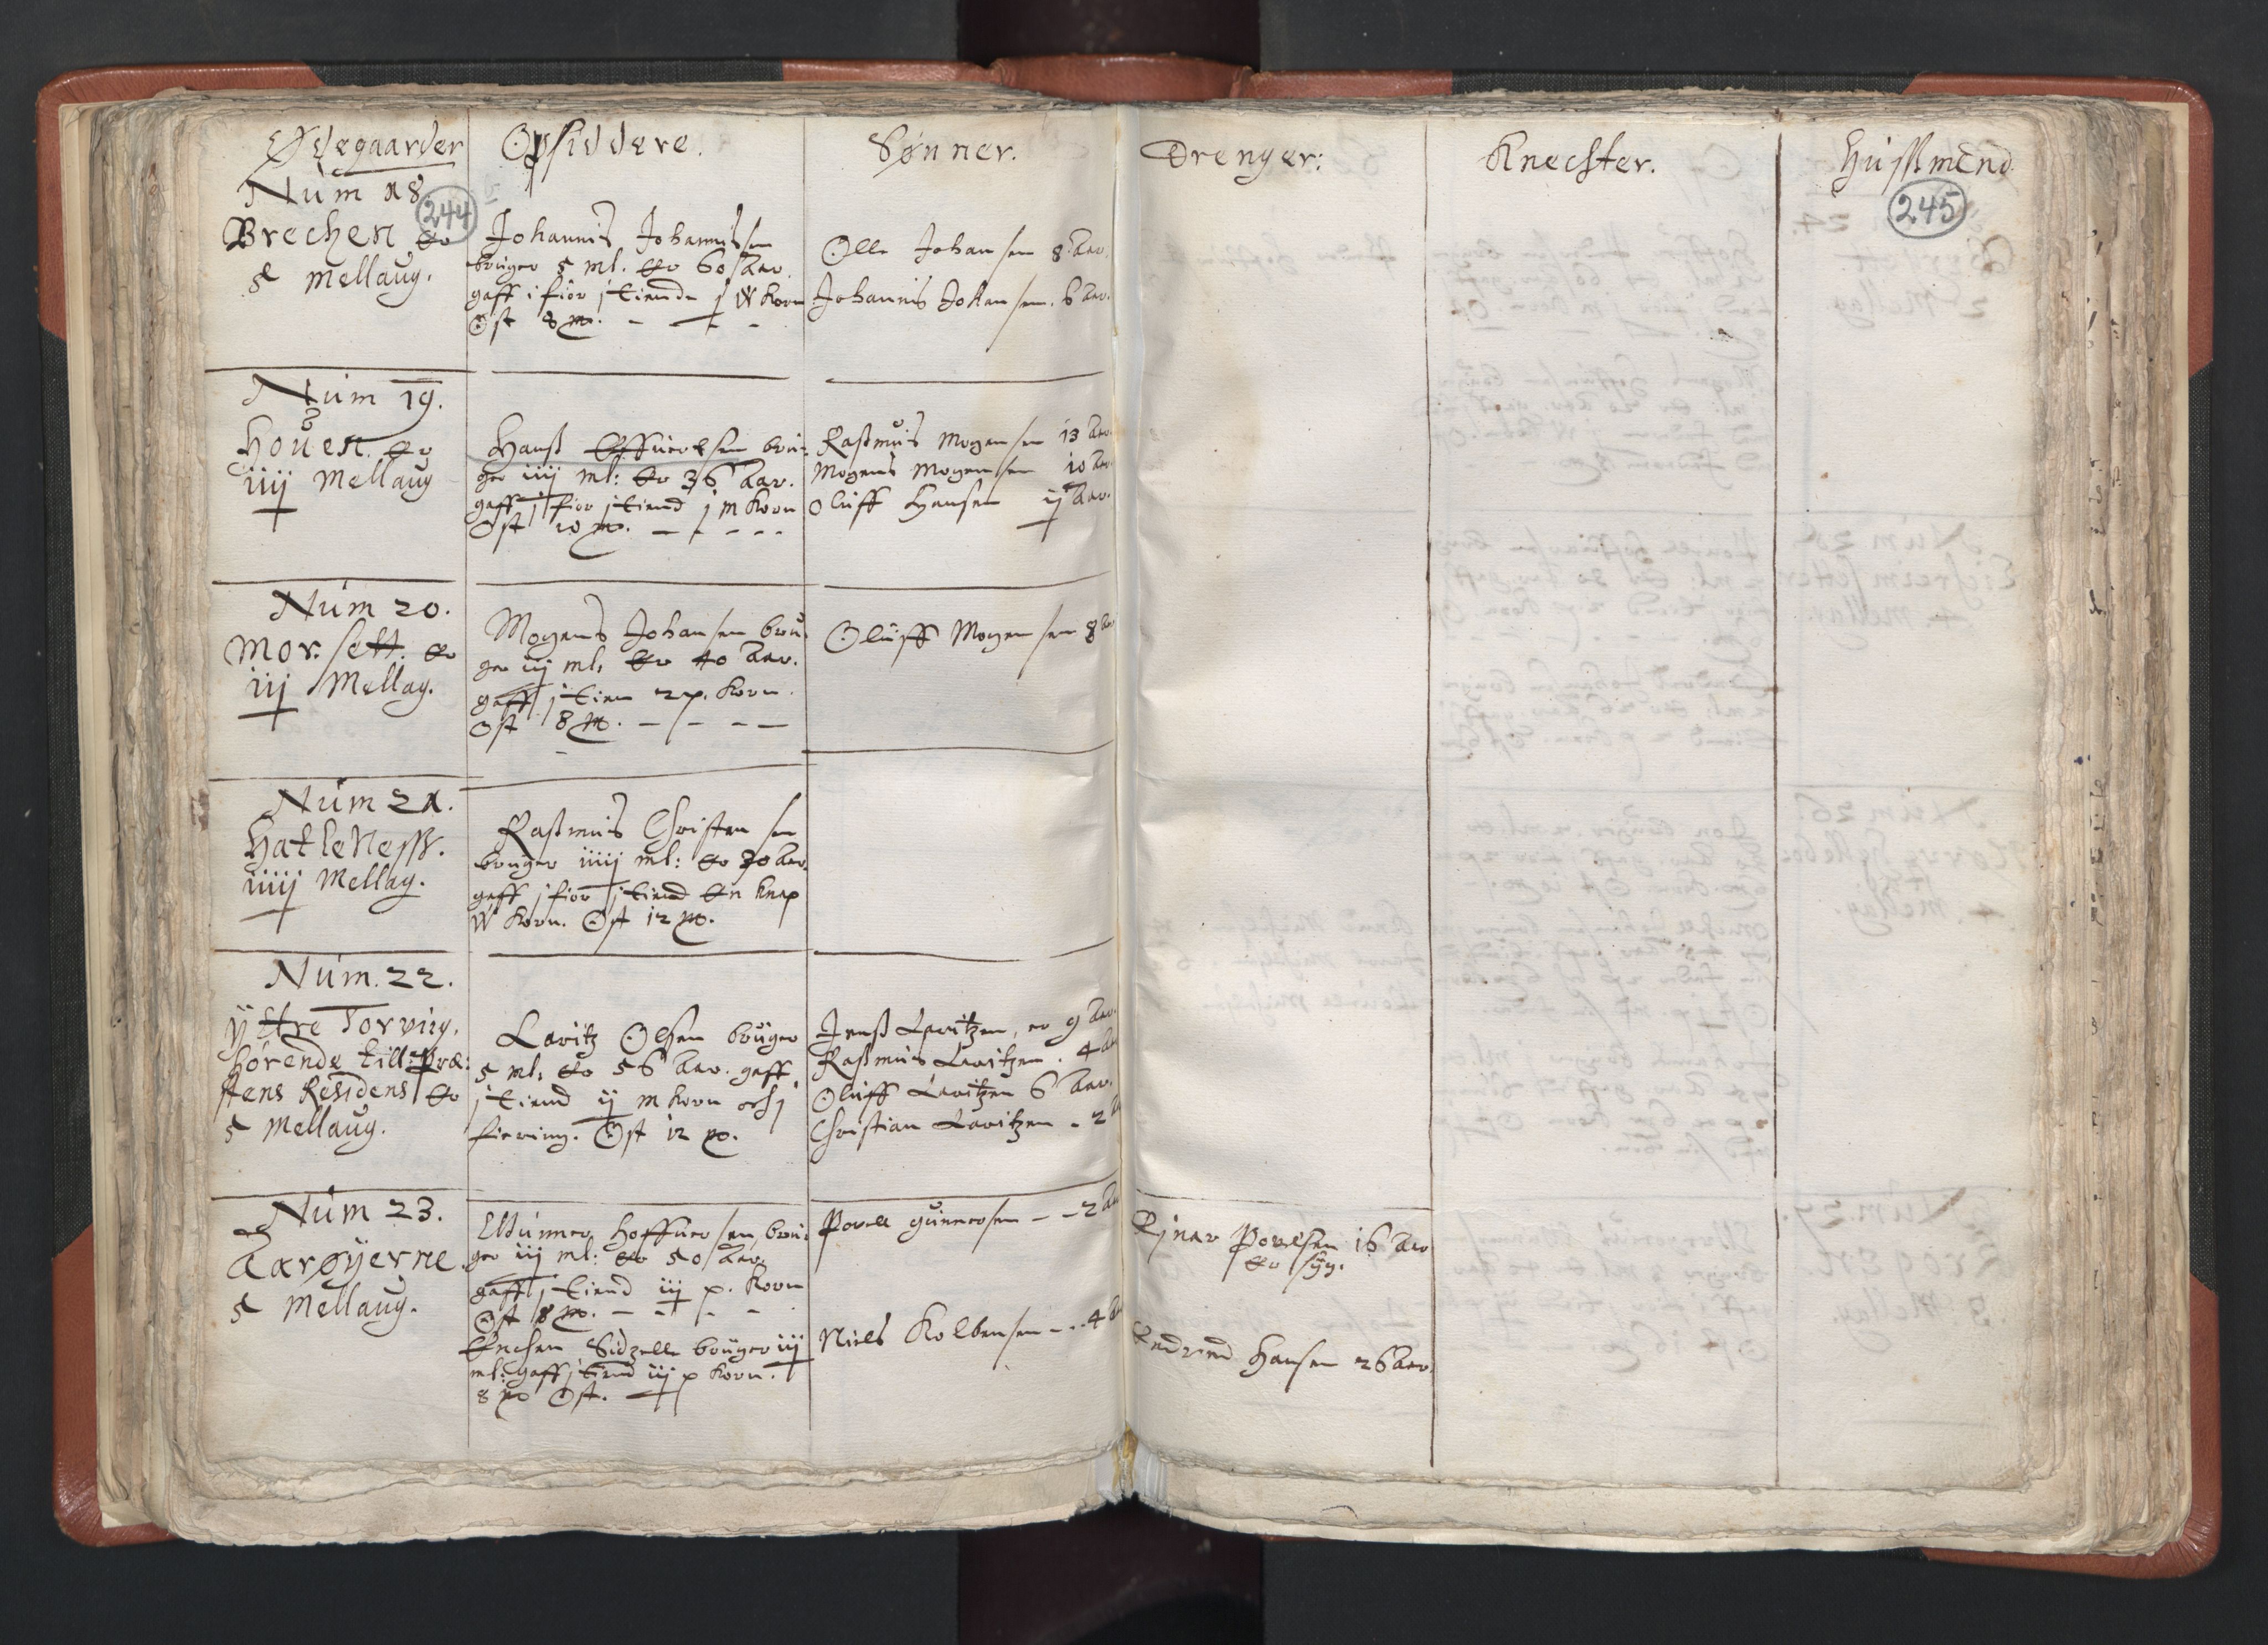 Ødegaarder
Opsiddere.
Sønner.
Drenger:
Knechter.
Hussmend
244
245
Num 18
Brechen er
5 Mellaug.
Johannis Johannissen
bruger 5 ml. er 60 Aar.
gaff i fior j tiende j W Korn
Ost 8 m. - - -
Olle Johansen 8 Aar.
Johannis Johansen. 6 Aar.
Num 19.
Houen. er
iiij Mellaug
Hanss bru-
ger iiij ml: er 36 Aar.
gaff j fior j tiend j m Korn
Ost 10 m. - - - - -
Rassmus Mogensen 13 Aar.
Mogens Mogensen 10 Aar.
Oluff Hansen ij Aar.
Num 20.
Mor.sett. er
iij Mellag.
Mogens Johansen bru-
ger iij ml: er 40 Aar.
gaff j tien 2 p. Korn.
Ost 8 m. - - - -
Oluff Mogensen 8 Aar
Num 21.
Hatleness.
iiij Mellag.
Rassmus Christensen
bruger iiij ml: er 30 Aar.
gaff j fior j tiend En knap
W Korn. Ost 12 m.
Num. 22.
Ÿttre Torving.
hørende till Præ:
stens Residens er
5 Mellaug.
Lavritz Olsen bruger
5 ml: er 56 Aar. gaff
j tiend ij m Korn och j
fiering. Ost 12 m.
Jenss Lavritzen, er 9 Aar.
Rassmus Lavritzen. 4 Aar
Oluff Lavritzen 6 Aar.
Christian Lavritzen - 2 Aar
Num 23.
Aarøÿerne.
5 Mellaug.
bru-
ger iij ml: er 50 Aar.
gaff j tiend iij p. Korn
Ost 8 m. - - - -
Enchen Sidzelle bruger iij
ml: gaff j tiend iij p Korn.
8 m Ost.
Povell gunnersen - - 2 Aar
Niels Kolbensen - - 4 Aar
Ejnar Povelsen 16 Aar
er syg.
Hansen 26 Aar.